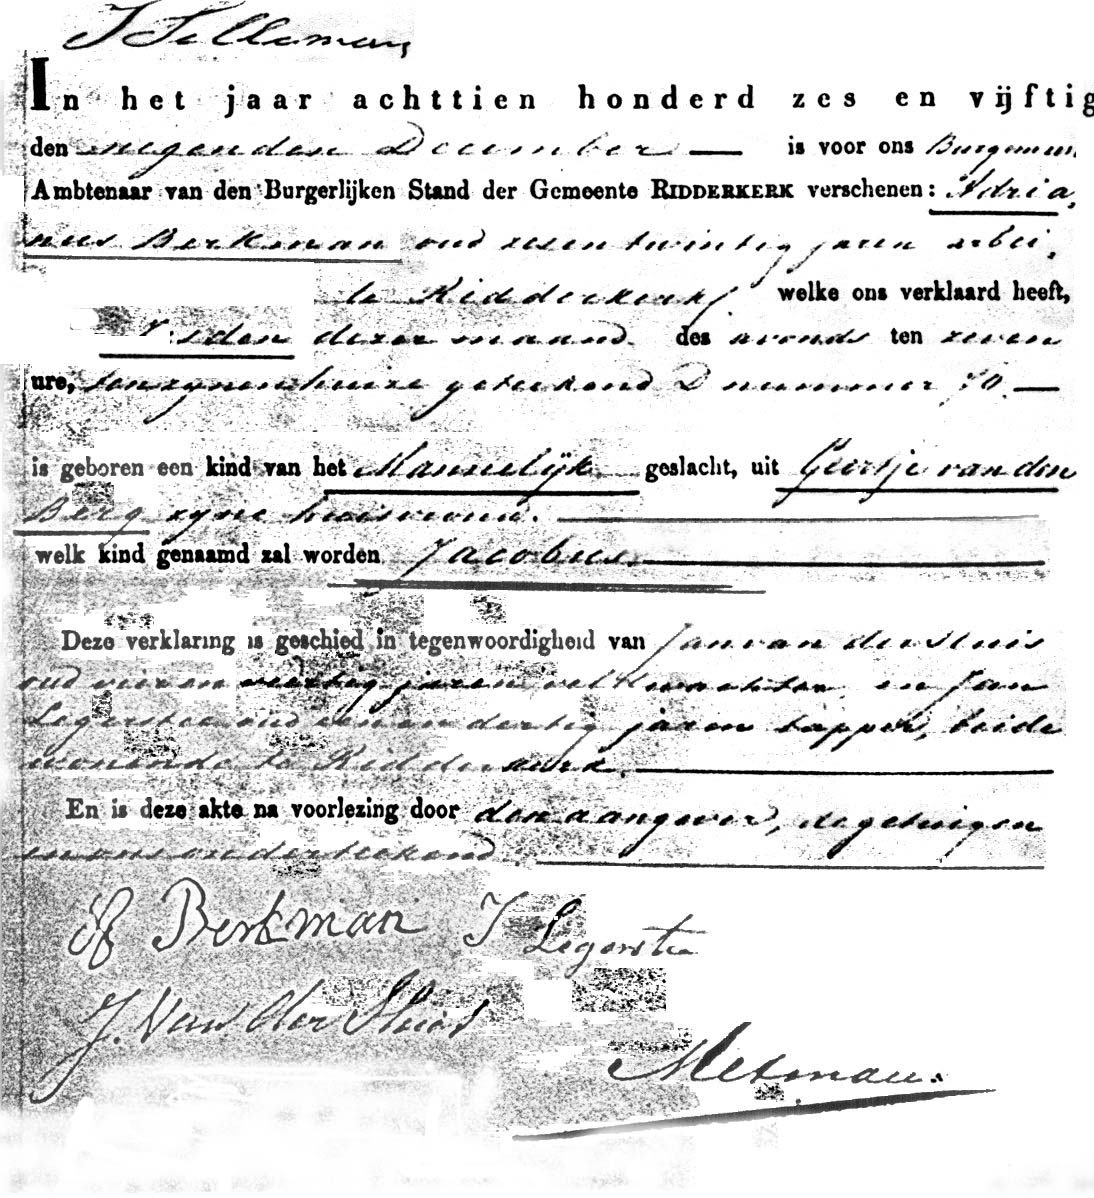 J Selleman,
In het jaar achttien honderd zes en vijftig
den negenden December — is voor ons Burgemeester
Ambtenaar van den Burgerlijken Stand der Gemeente RIDDERKERK verschenen: Adria,
nus Berkman oud zesentwintig jaren arbei,
te Ridderkerk welke ons verklaard heeft,
den dezer maand des avonds ten zeven
ure, tenzynenhuize geteekend D nummer 70. —
is geboren een kind van het Mannelijk geslacht, uit Geertje van den
Berg zyne huisvrouw.
welk kind genaamd zal worden Jacobus
Deze verklaring is geschied in tegenwoordigheid van Jan van der Sluis
oud vierenveertig jaren veldwachter, en Jan
Legerstee oud eenendertig jaren tapper, beide
wonende te Ridderkerk.
En is deze akte na voorlezing door den aangever, de getuigen
en ons onderteekend.
Berkman J Legerstee
J. Van der Sluis
Metman.